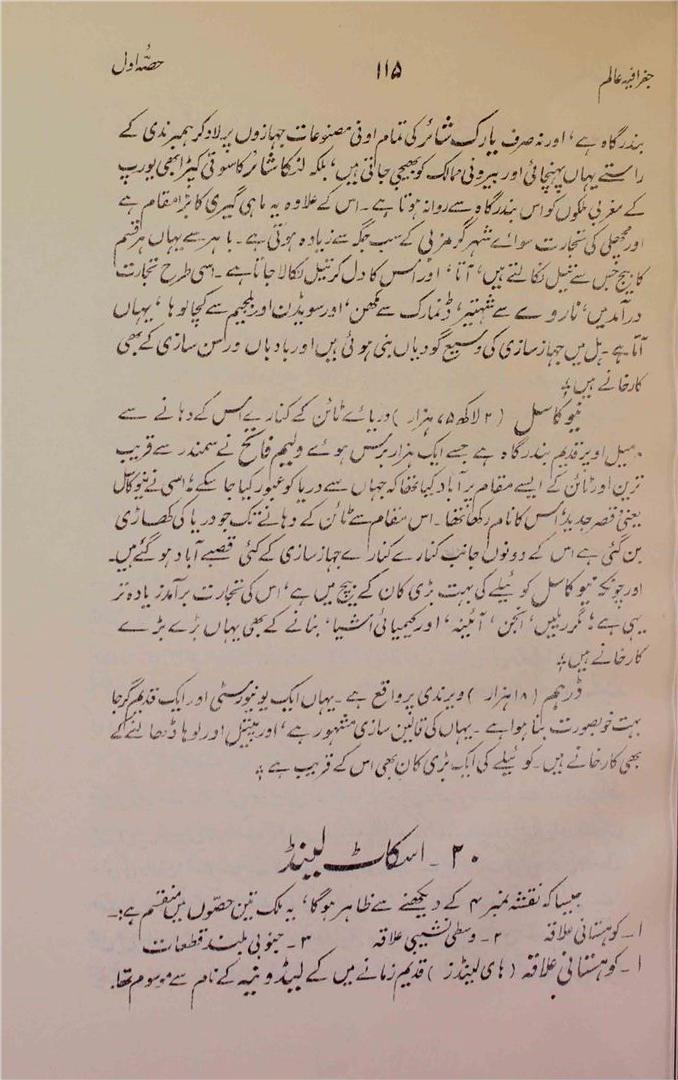 جغرافیۂ عالم ۱۱۵ حصّہ اول
بندرگاہ ہے، اور نہ صرف یارک شائر کی تمام اونی مصنوعات جہازوں پر لاد کر ہمبرندی کے
راستے یہاں پہنچائی اور بیرونی ممالک کو بھیجی جاتی ہیں، بلکہ لنکا شائر کا سوتی کپڑا بھی یورپ
کے مغربی ملکوں کو اس بندرگاہ سے روانہ ہوتا ہے۔ اس کے علاوہ یہ ماہی گیری کا بڑا مقام ہے
اور مچھلی کی تجارت سوائے شہر گرمزبی کے سب جگہ سے زیادہ ہوتی ہے۔ باہر سے یہاں ہر قسم
کا بیج جس سے تیل نکالتے ہیں، آتا، اور اُس کا دل کر تیل نکالا جاتا ہے۔ اسی طرح تجارت
درآمد میں، ناروے سے شہتیر، ڈنمارک سے مکھن، اور سویڈن اور بلجیم سے کچا لوہا، یہاں
آتا ہے۔ ہل میں جہاز سازی کی وسیع گودیاں بنی ہوئی ہیں اور بادباں و رسن سازی کے بھی
کارخانے ہیں۔
نیو کاسل (۲ لاکھ ۷۵ ہزار) دریائے ٹائن کے کنارے اس کے دہانے سے
میل اوپر قدیم بندرگاہ ہے جسے ایک ہزار برس ہوئے ولیم فاتح نے سمندر سے قریب
ترین اور ٹائن کے ایسے مقام پر آباد کیا تھا کہ جہاں سے دریا کو عبور کیا جا سکے۔ اسی نے نیو کاسل
یعنی قصر جدید اُس کا نام رکھا تھا۔ اس مقام سے ٹائن کے دہانے تک جو دریا کی کھاڑی
بن گئی ہے اس کے دونوں جانب کنارے کنارے جہاز سازی کے کئی قصبے آباد ہو گئے ہیں۔
اور چونکہ نیو کاسل کوئیلے کی بہت بڑی کان کے بیچ میں ہے، اس کی تجارت برآمد زیادہ تر
یہی ہے؛ مگر ریلیں، انجن، آئینہ، اور کیمیائی اشیا، بنانے کے بھی یہاں بڑے بڑے
کارخانے ہیں۔
ڈرہم (۱۸ ہزار) ویر ندی پر واقع ہے۔ یہاں ایک یونیورسٹی اور ایک قدیم گرجا
بہت خوبصورت بنا ہوا ہے۔ یہاں کی قالین سازی مشہور ہے، اور پیتل اور لوہا ڈھالنے کے
بھی کارخانے ہیں۔ کوئیلے کی ایک بڑی کان بھی اس کے قریب ہے۔
۲۰۔ اسکاٹ لینڈ
جیسا کہ نقشہ نمبر ۴ کے دیکھنے سے ظاہر ہوگا، یہ ملک تین حصّوں میں منقسم ہے:۔
۱۔ کوہستانی علاقہ ۲۔ وسطی نشیبی علاقہ ۳۔ جنوبی بلند قطعات
۱۔ کوہستانی علاقہ (ہائی لینڈز) قدیم زمانے میں کے لیڈونیہ کے نام سے موسوم تھا۔